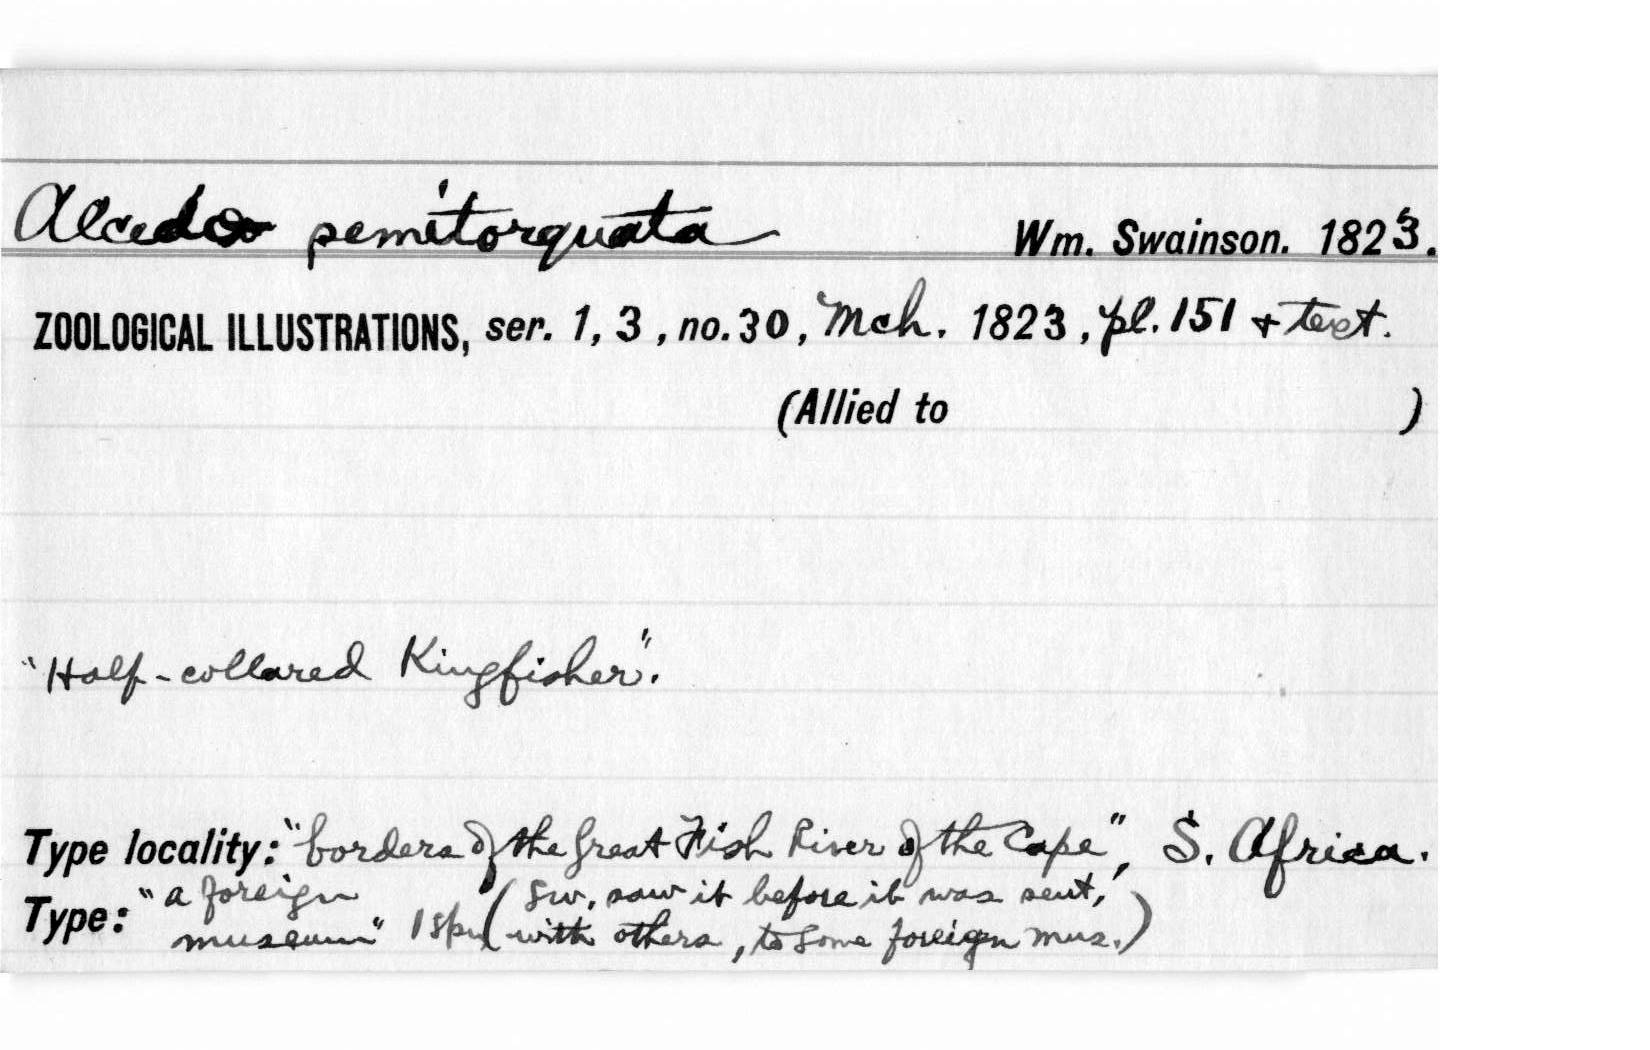 Alcedo semitorquata Wm. Swainson. 1823.
ZOOLOGICAL ILLUSTRATIONS, ser. 1, 3, no. 30, Mch. 1823, pl. 151 + text.
(Allied to )
"Half-collared Kingfisher".
Type locality: "borders of the Great Fish River of the Cape", S. Africa.
Type: "a foreign museum" 1 spm (Sw. saw it before it was sent,
with others, to some foreign mus.)